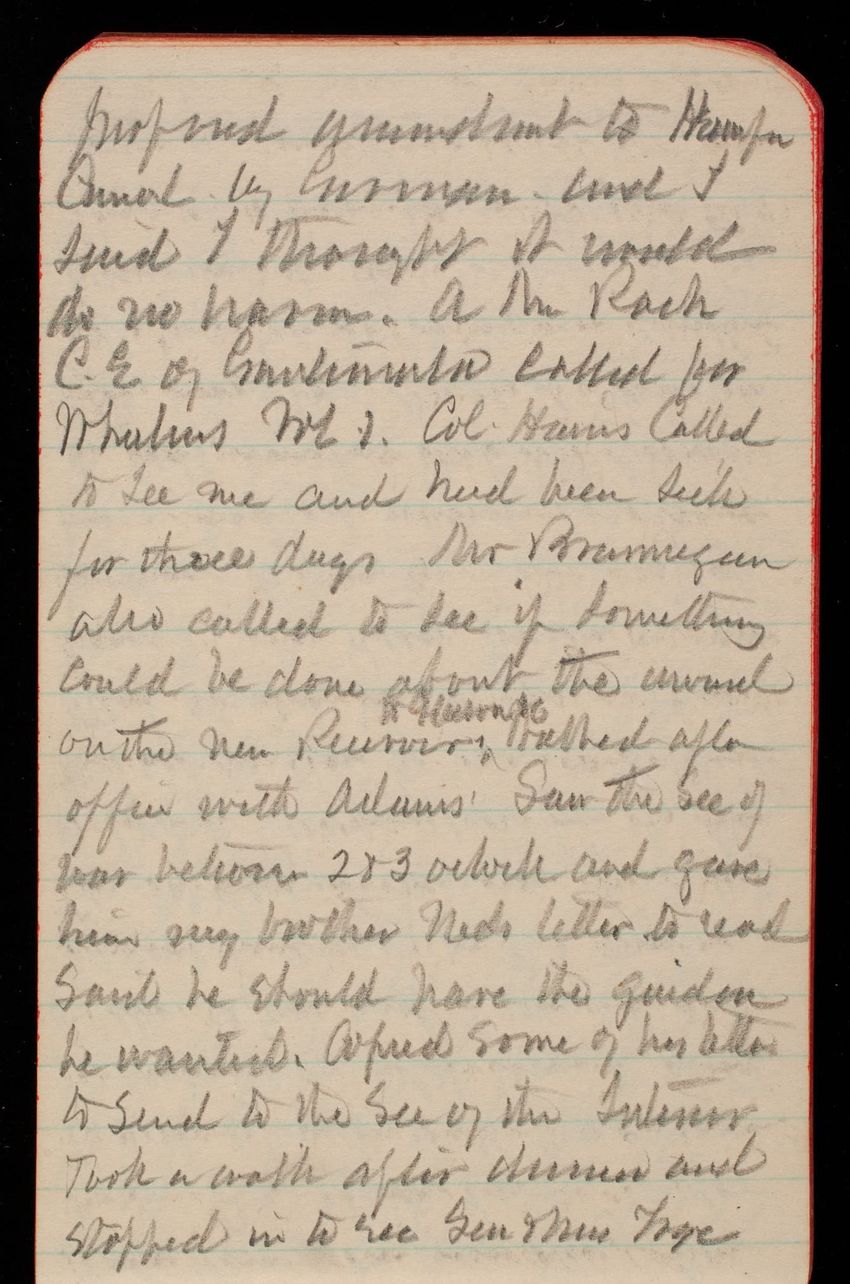 proposed amendment to
Canal by Gorman and I
said I thought it would
do no harm. A Mr Rock
C.E. of Guatemala called for
Wheelers Vol 1. Col. Harris Called
to see me and had been sick
for three days Mr Brannegan
also called to see if something
could be done about the award
on the new Reservoir, walked after
office with Adams' Saw the Sec of
War between 2 & 3 oclock and gave
him my brother Neds letter to read
Said he should have the guidon
he wanted. Copied some of his letter
to send to the Sec of the Interior
Took a walk after dinner and
stopped in to see Gen & Mrs